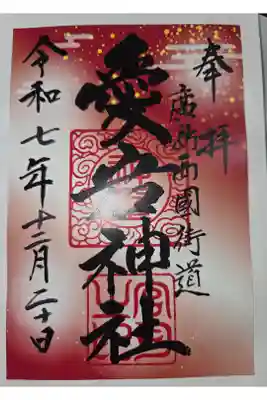 奉拝
西國街道
愛宕神社
令和七年十二月二十日